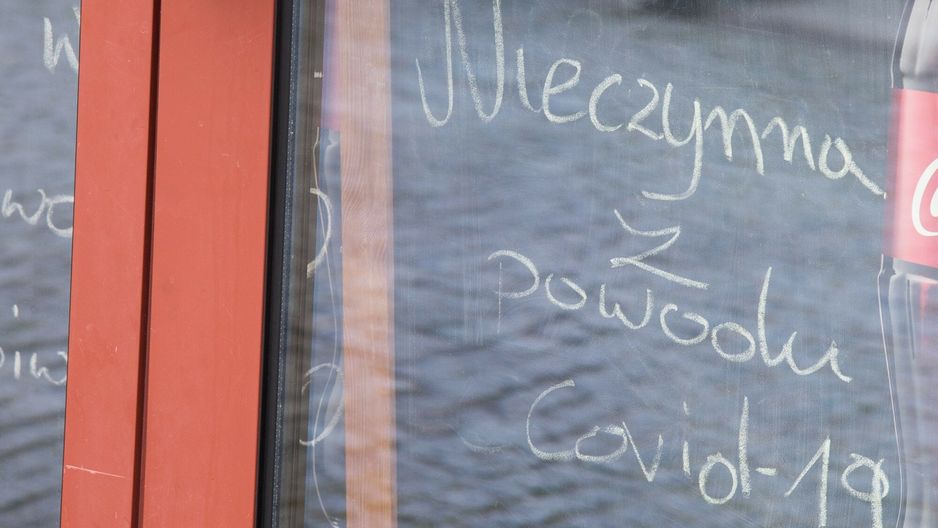 Nieczynna
z
powodu
Covid-19